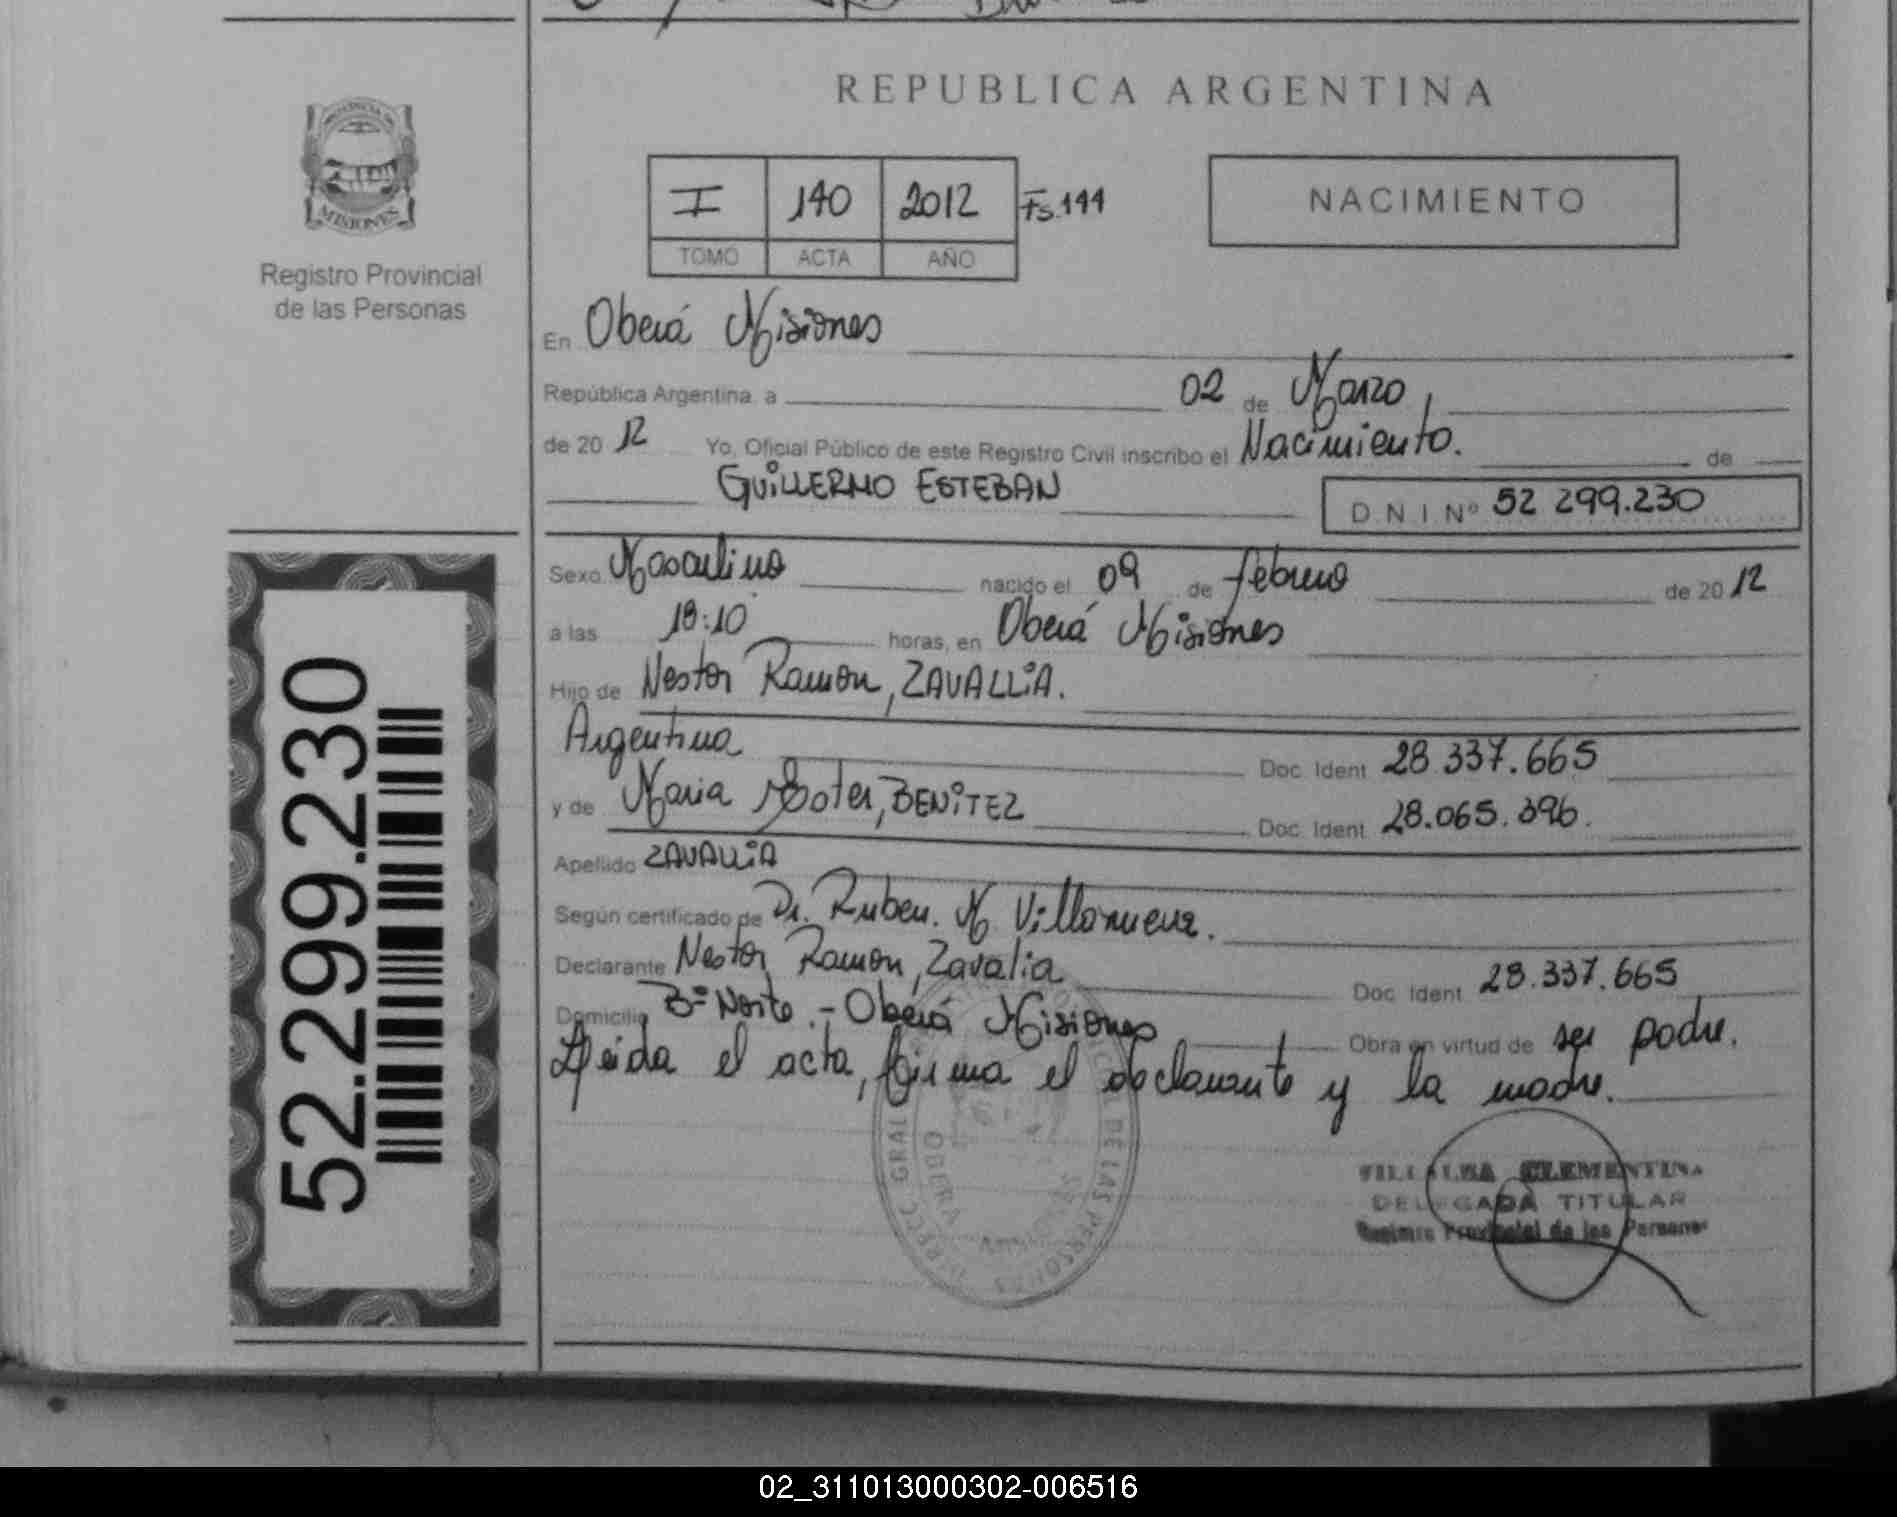 REPUBLICA ARGENTINA
PROVINCIA DE
MISIONES
Registro Provincial
de las Personas
I 140 2012 Fs.144
TOMO ACTA AÑO
NACIMIENTO
En Oberá Misiones
República Argentina, a 02 de Marzo,
de 20 12 Yo, Oficial Público de este Registro Civil inscribo el Nacimiento. de
GUiLLERMO ESTEBAN
D.N.I.Nº 52 299.230
Sexo Masculino nacido el 09 de febrero de 20 12
a las 18:10 horas, en Oberá Misiones
Hijo de Nestor Ramon, ZAVALLiA.
Argentina Doc. Ident 28.337.665
y de Maria Ester, BENiTEZ Doc. Ident 28.065.396.
Apellido ZAVALLiA
Según certificado de Dr. Ruben. M Villanueva.
Declarante Nestor Ramon, Zavalia Doc. Ident 28.337.665
Domicilio Bº Norte.- Oberá Misiones Obra en virtud de ser padre.
Leida el acta, firma el declarante y la madre.
VILLALBA CLEMENTINA
DELEGADA TITULAR
Registro Provincial de las Personas
DE LAS PERSONAS
OBERA
MISIONES
52.299.230
02_311013000302-006516